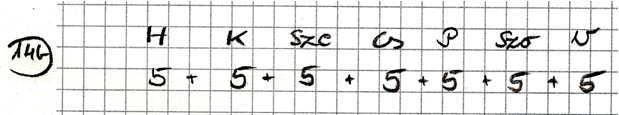 14b
H K Sze Cs P Szo V
5 + 5 + 5 + 5 + 5 + 5 + 5